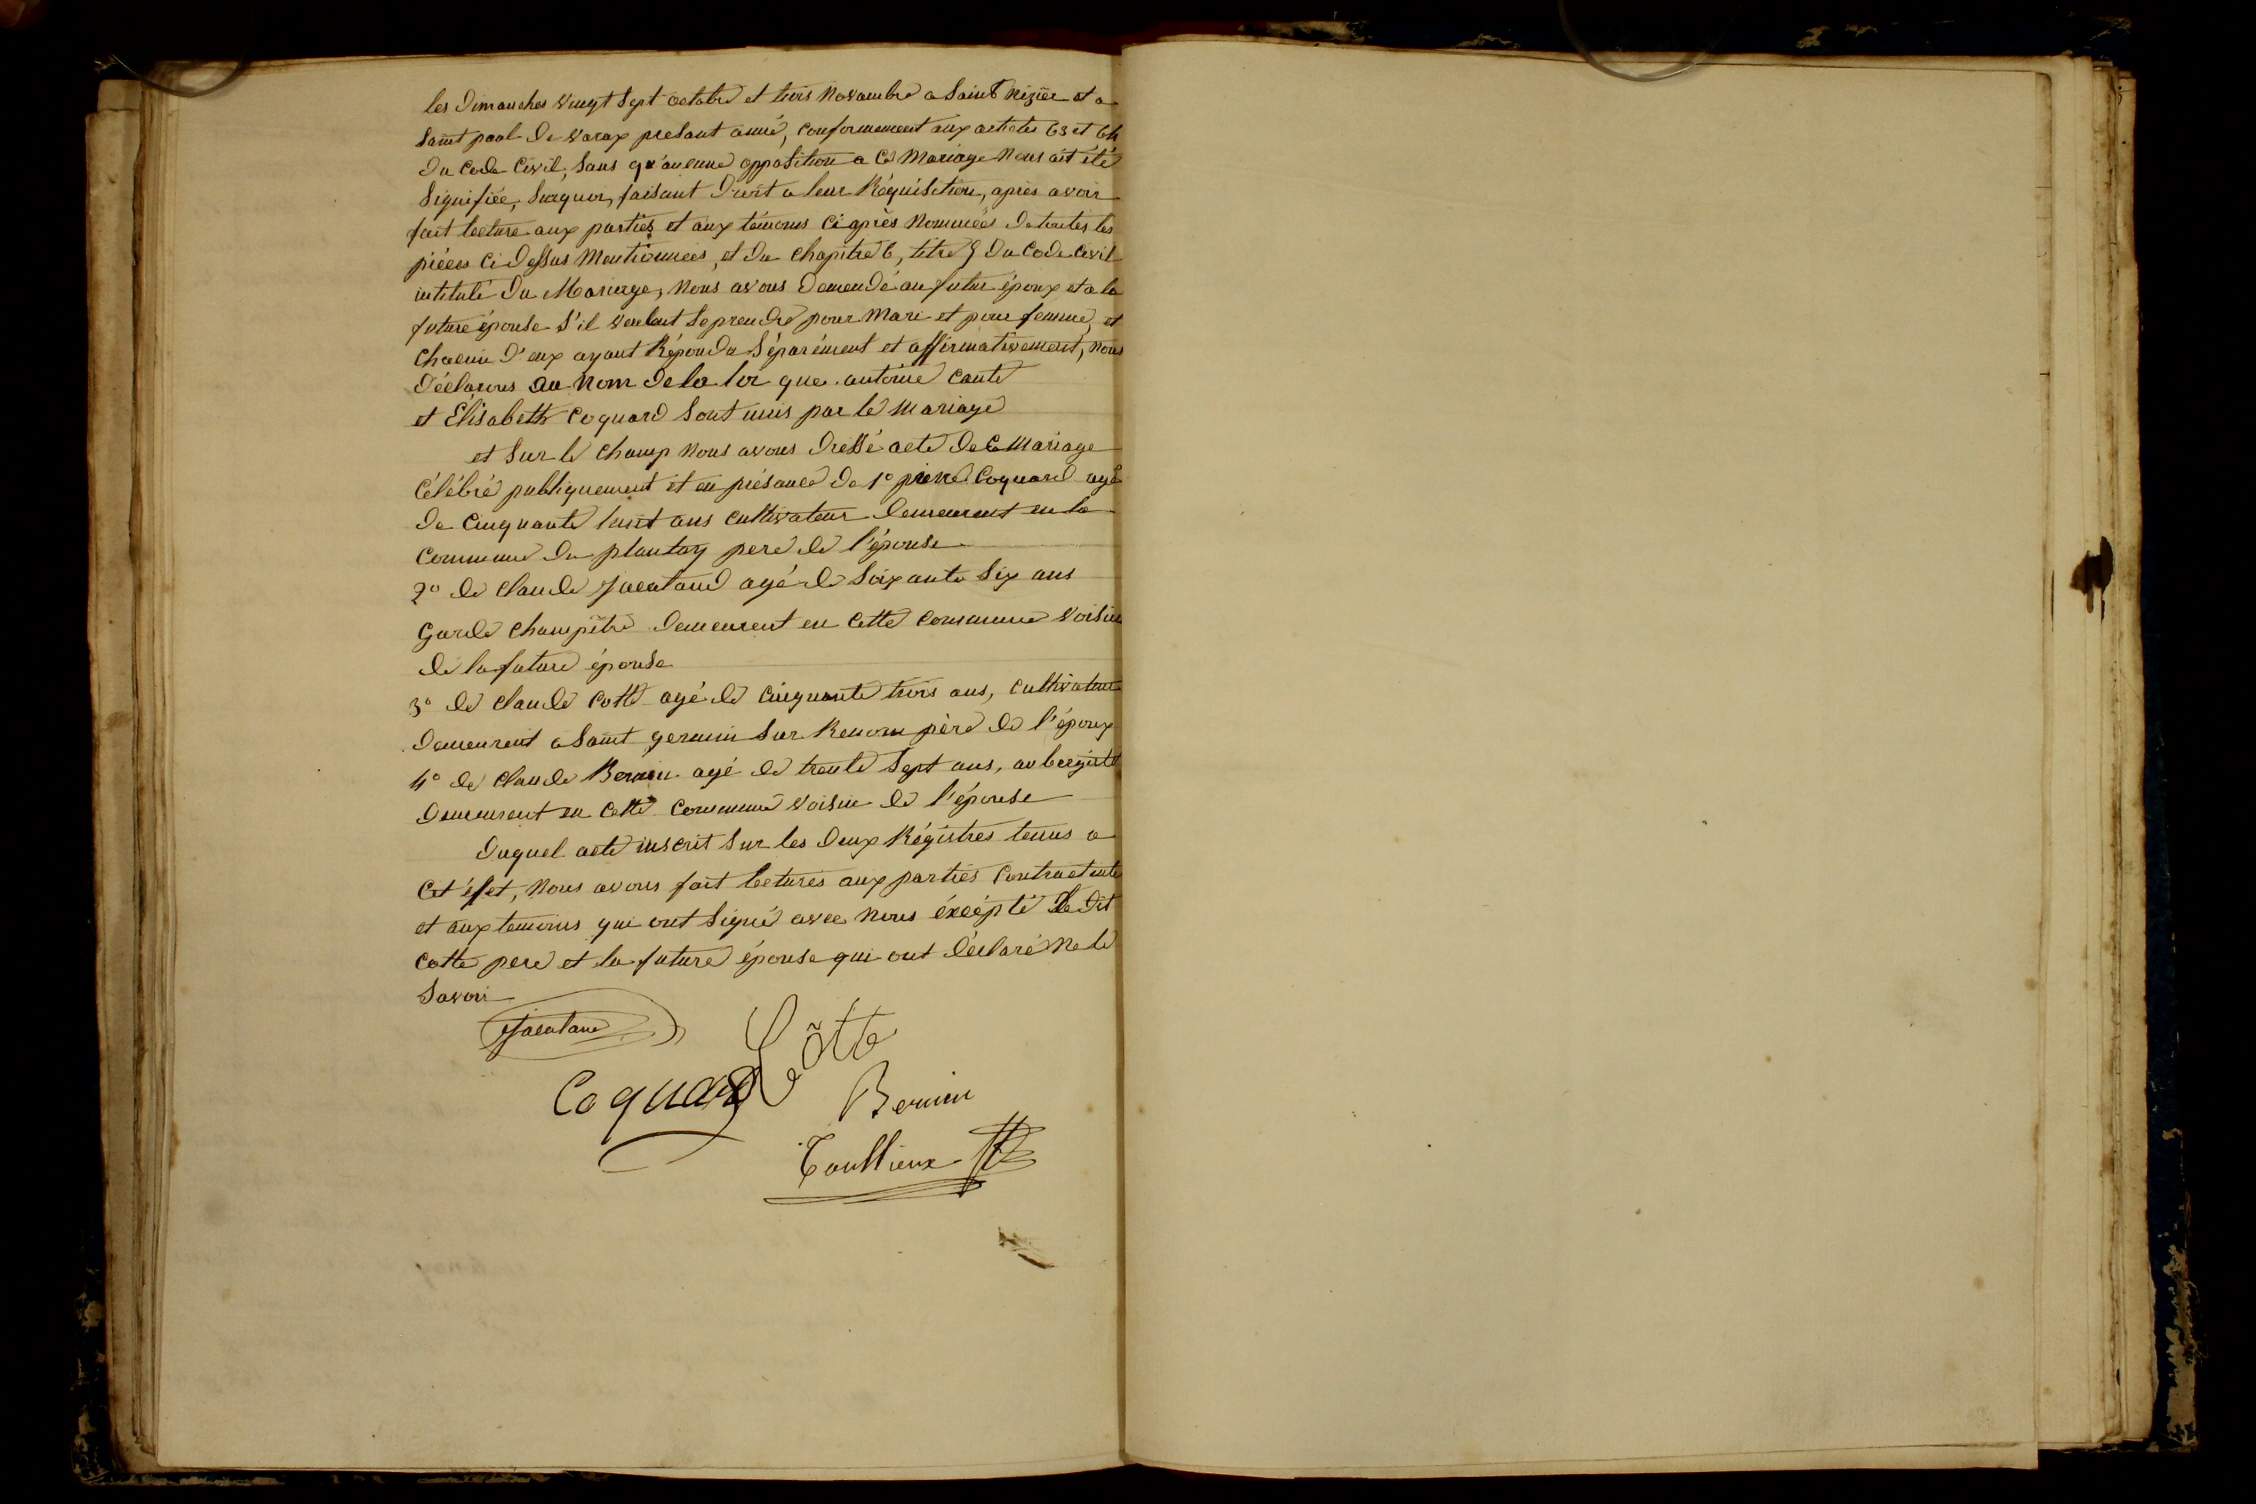 les Dimanches vingt Sept octobre et trois Novambre a Saint Nizier et a
Saint paul de varax presant année, conformement aux articles 63 et 64
du code Civil, Sans qu'aucune opposition a Ce Mariage Nous ait été
Signifiée, Surquoi, faisant Droit a leur Réquisition, après avoir
fait lecture aux parties et aux témoins Ci après Nommées de toutes les
pièces Ci Dessus Mentionnées, et du Chapitre 6, titre 5 du Code Civil
intitulé du Mariage, Nous avons Demendé au futur époux et a la
future épouse S'il veulent Se prendre pour Mari et pour femme, et
Chacun D'eux ayant Répondu Séparément et affirmativement, Nous
Déclarons au Nom de la loi que antoine Caute
et Elisabeth Coquard Sont unis par le Mariage
et Sur le Champ Nous avons Dressé acte de Ce Mariage
Célébré publiquement et en présance de 1° pierre Coquard agé
de Cinquante huit ans Cultivateur Demeurant en la
Commune du plantay pere de l'épouse
2° de Claude Jacaland agé de Soixante Six ans
Garde Champêtre Demeurent en Cette Commune Voisin
de la future épouse
3° de Claude Cotte agé de Cinquante trois ans, Cultivateur
Demeurent a Saint germin Sur Renom père de l'époux
4° de Claude Bernin agé de trente Sept ans, aubergiste
Demeurent en Cette Commune Voisin de l'épouse
Duquel acte inscrit Sur les Deux Régistres tenus a
Cet éfet, Nous avons fait lectures aux parties Contractente
et aux temoins qui ont Signé avec Nous éxcépté le Dit
Cotte pere et la future épouse qui ont Déclaré Ne le
Savoir
Jacaland
Cotte
Coquard
Bernin
Toullieux